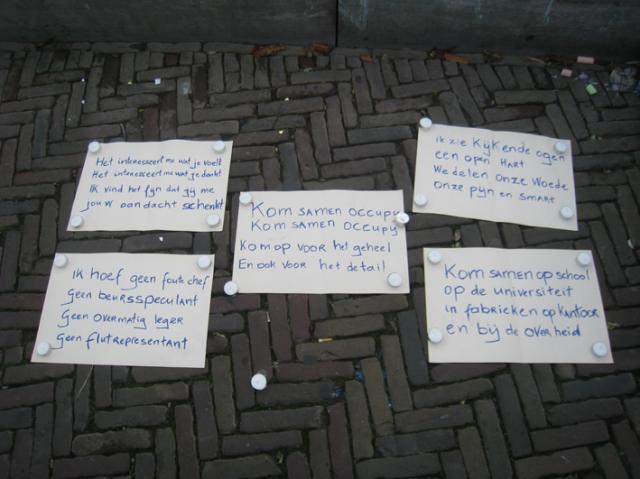 Het interesseert me wat je voelt
Het interesseert me wat je denkt
IK vind het fijn dat jij me
jouw aandacht schenkt
IK hoef geen foute chef
Geen beursspeculant
Geen overmatig leger
Geen flutrepresentant
Kom samen occupy
Kom samen occupy
Kom op voor het geheel
En ook voor het detail
ik zie Kijkende ogen
een open HART
We delen onze Woede
onze pijn en smart
Kom samen op school
op de universiteit
in fabrieken op kantoor
en bij de overheid